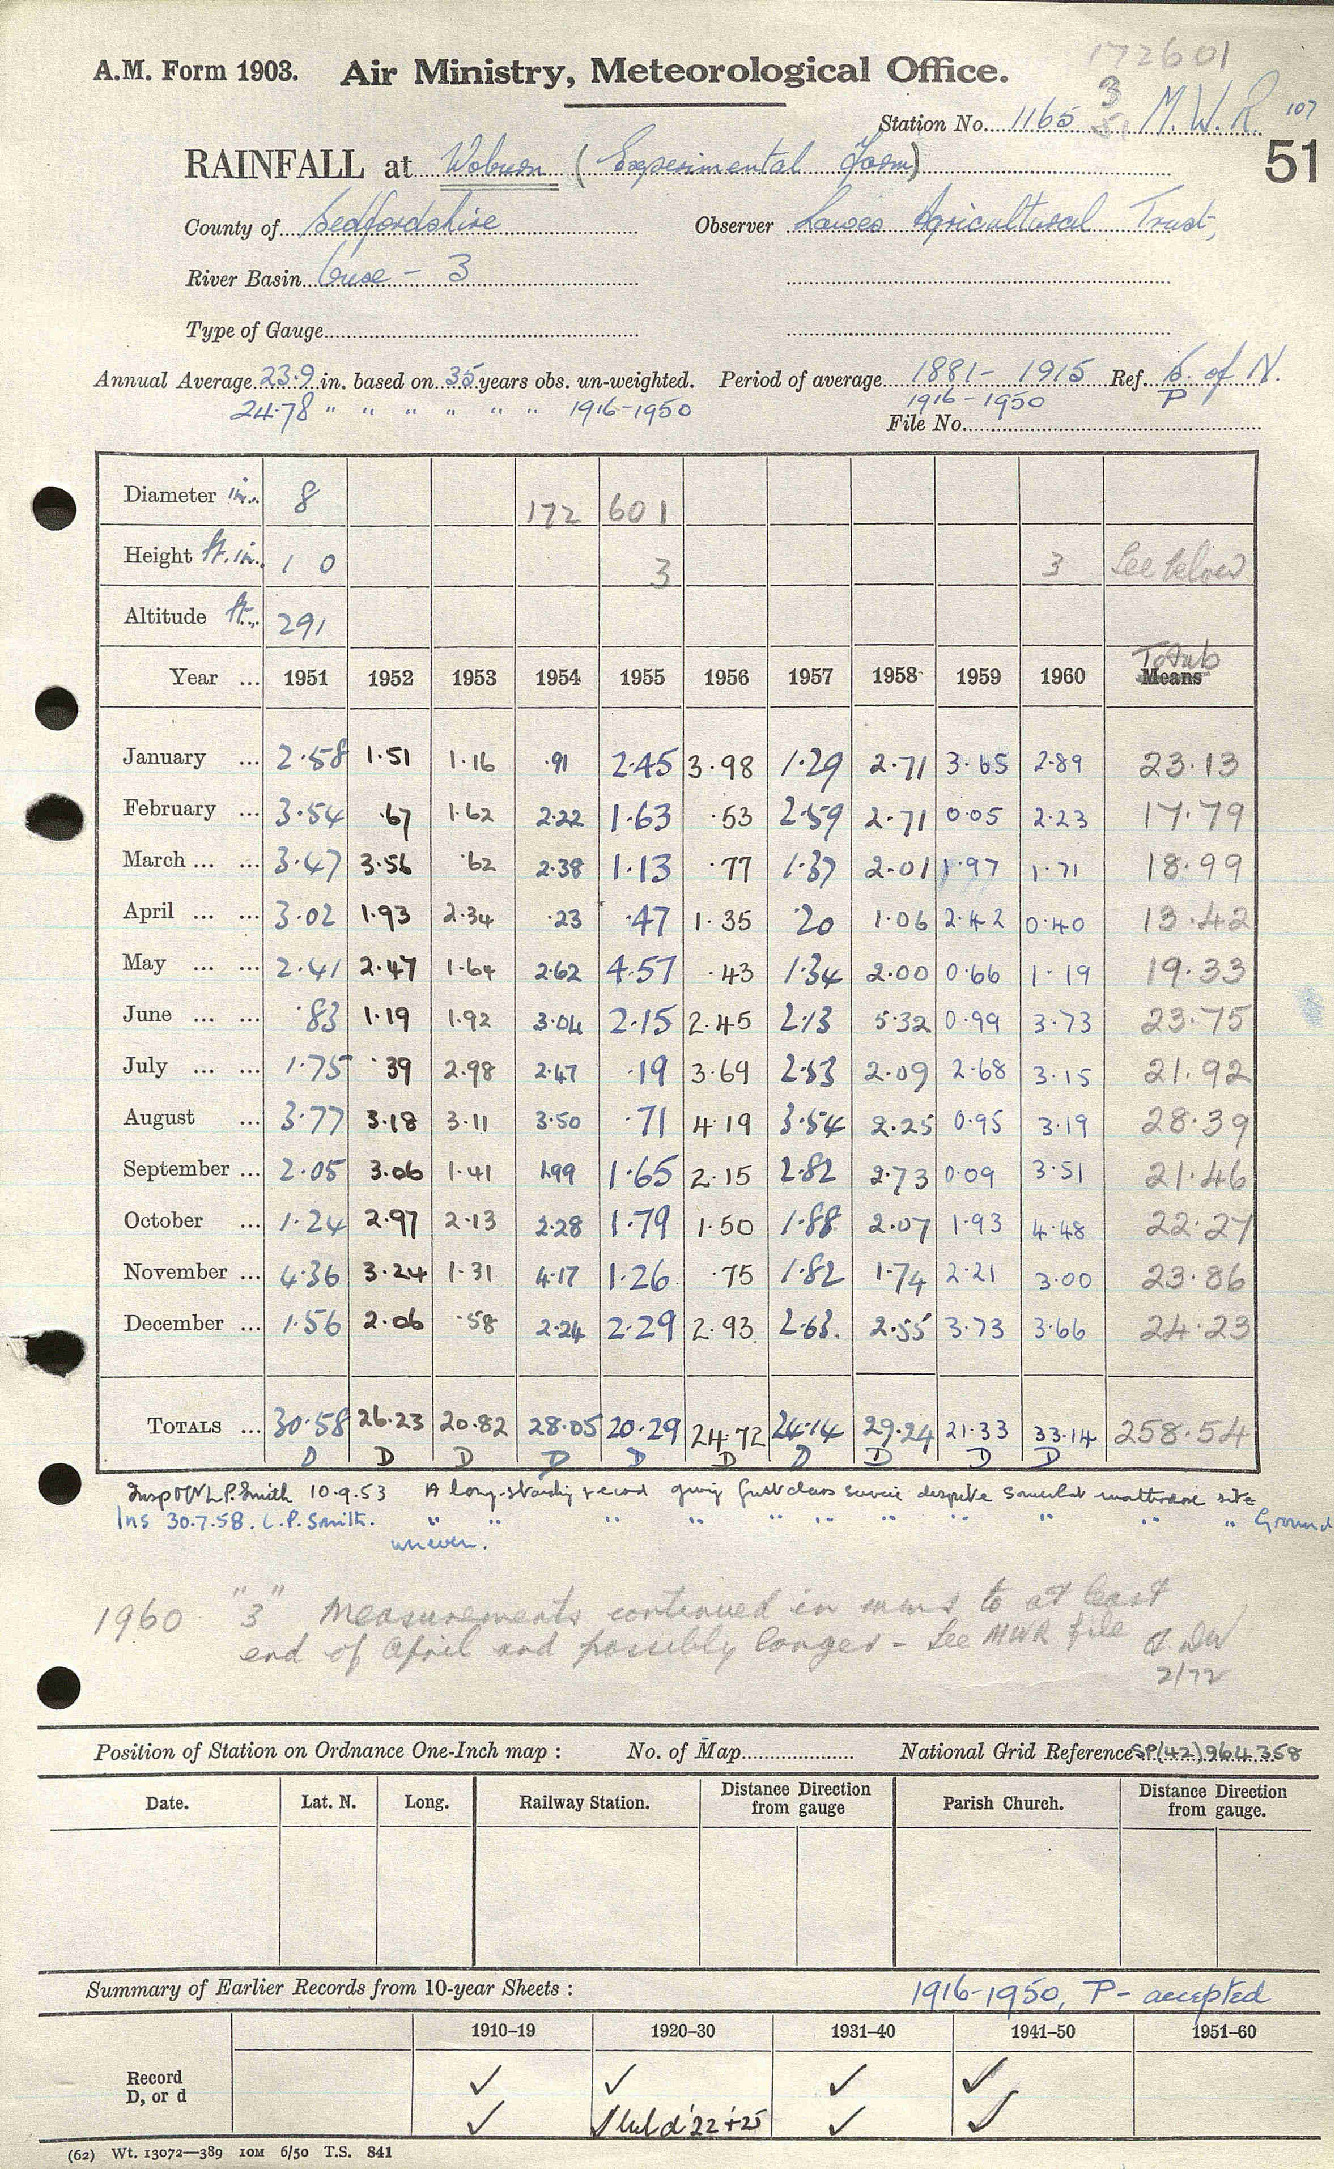 172601
A.M. Form 1903. Air Ministry, Meteorological Office.
3
Station No. 1165 M.W.R 107
51
RAINFALL at Woburn (Experimental Farm)
County of Bedfordshire Observer Lawes Agricultural Trust,
River Basin Ouse - 3
Type of Gauge
Annual Average 23.9 in. based on 35 years obs. un-weighted. Period of average 1881 - 1915 Ref. B. of N.
24.78 " " " " " " 1916-1950 1916-1950 P
File No.
Diameter in. 8 172 601
Height ft. in. 1 0 3 3 See below
Altitude ft. 291
Totals
Year ... 1951 1952 1953 1954 1955 1956 1957 1958 1959 1960 Means
January ... 2.58 1.51 1.16 .91 2.45 3.98 1.29 2.71 3.65 2.89 23.13
February ... 3.54 .67 1.62 2.22 1.63 .53 2.59 2.71 0.05 2.23 17.79
March ... ... 3.47 3.56 .62 2.38 1.13 .77 1.37 2.01 1.97 1.71 18.99
April ... ... 3.02 1.93 2.34 .23 .47 1.35 .20 1.06 2.42 0.40 13.42
May ... ... 2.41 2.47 1.64 2.62 4.57 .43 1.34 2.00 0.66 1.19 19.33
June ... ... .83 1.19 1.92 3.04 2.15 2.45 2.13 5.32 0.99 3.73 23.75
July ... ... 1.75 .39 2.98 2.47 .19 3.69 2.53 2.09 2.68 3.15 21.92
August ... 3.77 3.18 3.11 3.50 .71 4.19 3.54 2.25 0.95 3.19 28.39
September ... 2.05 3.06 1.41 1.99 1.65 2.15 2.82 2.73 0.09 3.51 21.46
October ... 1.24 2.97 2.13 2.28 1.79 1.50 1.88 2.07 1.93 4.48 22.27
November ... 4.36 3.24 1.31 4.17 1.26 .75 1.82 1.74 2.21 3.00 23.86
December ... 1.56 2.06 .58 2.24 2.29 2.93 2.63. 2.55 3.73 3.66 24.23
TOTALS ... 30.58 26.23 20.82 28.05 20.29 24.72 24.14 29.24 21.33 33.14 258.54
D D D D D D D D D D
L.P. Smith 10.9.53 A long-standing record giving first class service despite somewhat site
Ins 30.7.58. L.P. Smith. " " " " " " " " " " " Ground
uneven.
1960 "3" Measurements continued in mms to at least
end of April and possibly longer - See MWR file
2/72
Position of Station on Ordnance One-Inch map : No. of Map National Grid Reference SP(42)964358
Date. Lat. N. Long. Railway Station. Distance Direction from gauge Parish Church. Distance Direction from gauge.
Summary of Earlier Records from 10-year Sheets : 1916-1950, P - accepted
1910–19 1920–30 1931–40 1941–50 1951–60
Record ✓ ✓ ✓ ✓
D, or d
✓ ✓ but d '22 + 25 ✓ ✓
(62) Wt. 13072—389 10M 6/50 T.S. 841